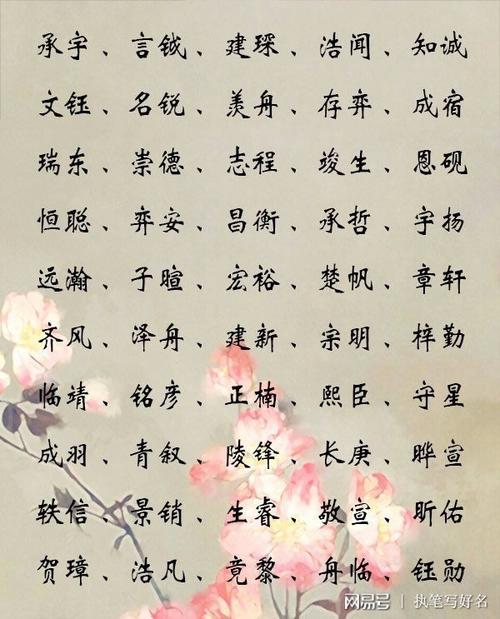 承宇、言钺、建琛、浩闻、知诚
文钰、名锐、羡舟、存弈、成宿
瑞东、崇德、志程、竣生、恩砚
恒聪、弈安、昌衡、承哲、宇扬
远瀚、子暄、宏裕、楚帆、章轩
齐风、泽舟、建新、宗明、梓勤
临靖、铭彦、正楠、熙臣、守星
成羽、青叙、陵锋、长庚、晔宣
轶信、景销、生睿、敬宣、昕佑
贺璋、浩凡、竟黎、舟临、钰勋
网易号 | 执笔写好名